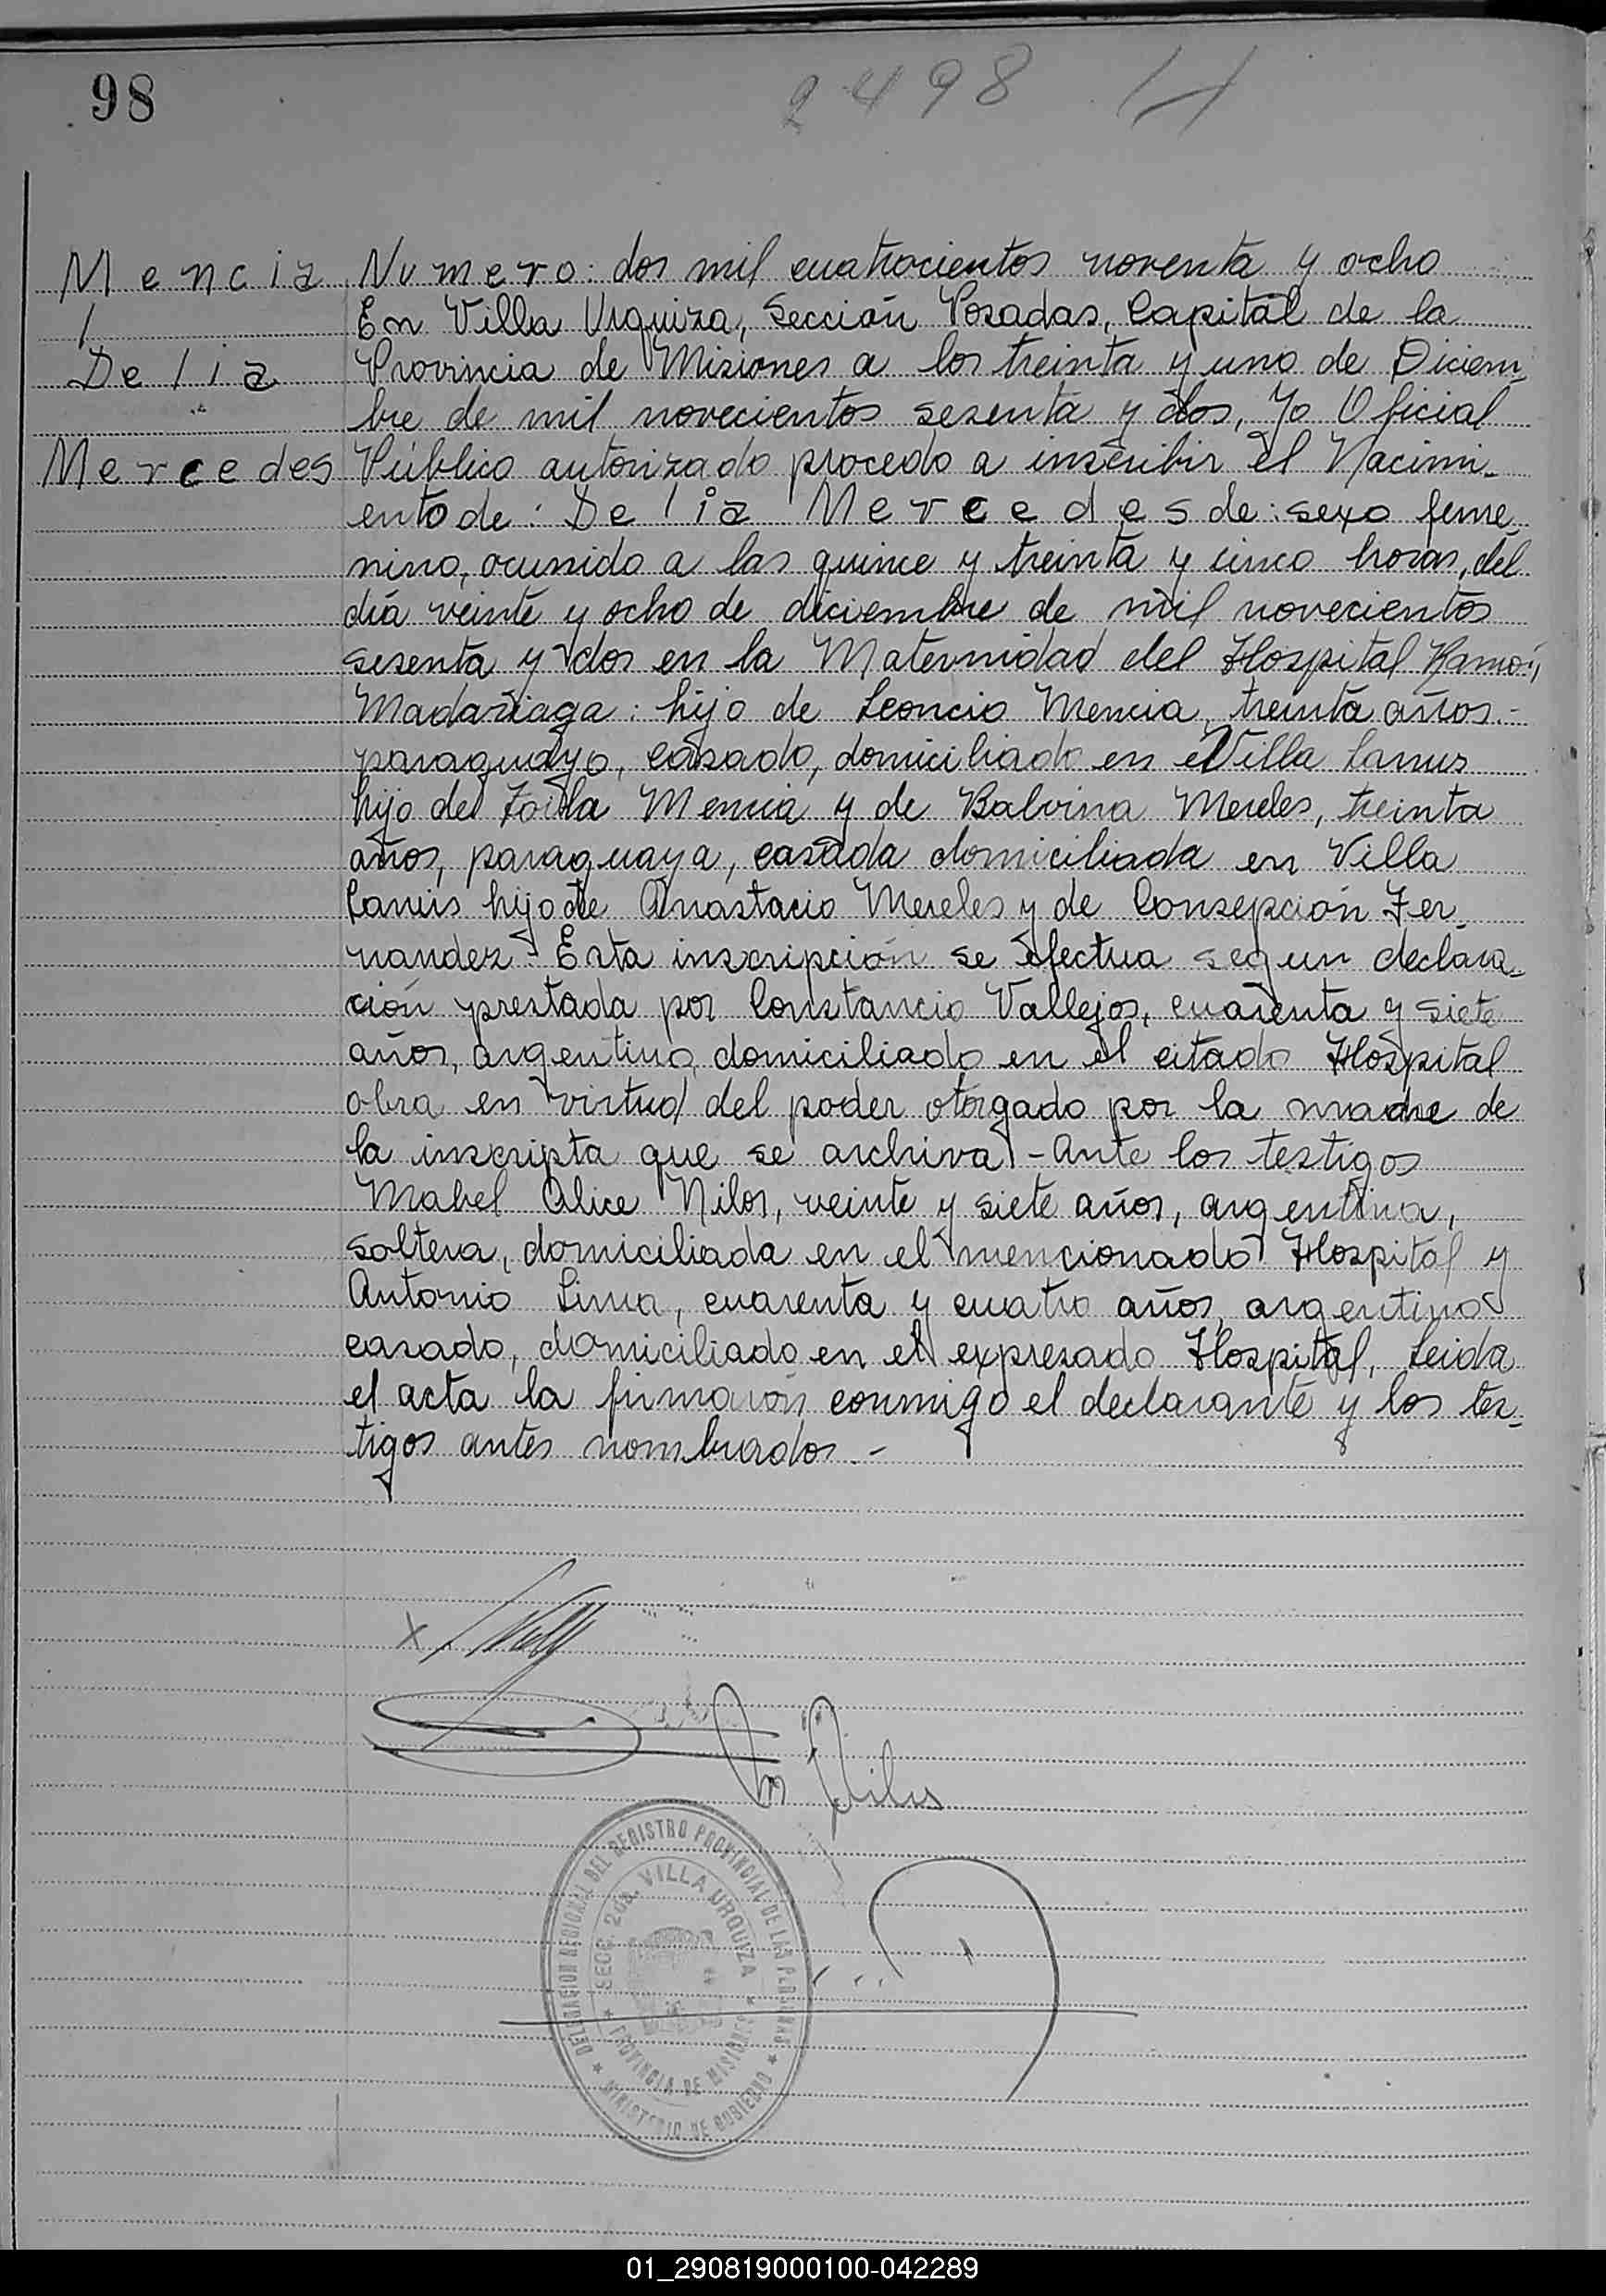 98
2498
Mencia
Numero: dos mil cuatrocientos noventa y ocho
En Villa Urquiza, Sección Posadas, Capital de la
Delia
Provincia de Misiones a los treinta y uno de Diciem-
bre de mil novecientos sesenta y dos, Yo Oficial
Mercedes
Público autorizado procedo a inscribir el Nacimi-
ento de: Delia Mercedes de: sexo feme-
nino, ocurrido a las quince y treinta y cinco horas, del
día veinte y ocho de diciembre de mil novecientos
sesenta y dos en la Maternidad del Hospital Ramón
Madariaga: hijo de Leoncio Mencia, treinta años.-
paraguayo, casado, domiciliado en Villa Lanus
hijo de Zoila Mencia y de Balvina Mereles, treinta
años, paraguaya, casada domiciliada en Villa
Lanus hijo de Anastacio Mereles y de Consepción Fer
nandez - Esta inscripción se efectua segun declara-
ción prestada por Constancio Vallejos, cuarenta y siete
años, argentino, domiciliado en el citado Hospital
obra en virtud del poder otorgado por la madre de
la inscripta que se archiva - Ante los testigos
Mabel Alice Nilos, veinte y siete años, argentina,
soltera, domiciliada en el mencionado Hospital y
Antonio Lima, cuarenta y cuatro años, argentino
casado, domiciliado en el expresado Hospital, Leida
el acta la firmaron conmigo el declarante y los tes-
tigos antes nombrados.-
DELEGACION REGIONAL DEL REGISTRO PROVINCIAL DE LAS PERSONAS
SECC. 2da. VILLA URQUIZA
PROVINCIA DE MISIONES
MINISTERIO DE GOBIERNO
01_290819000100-042289